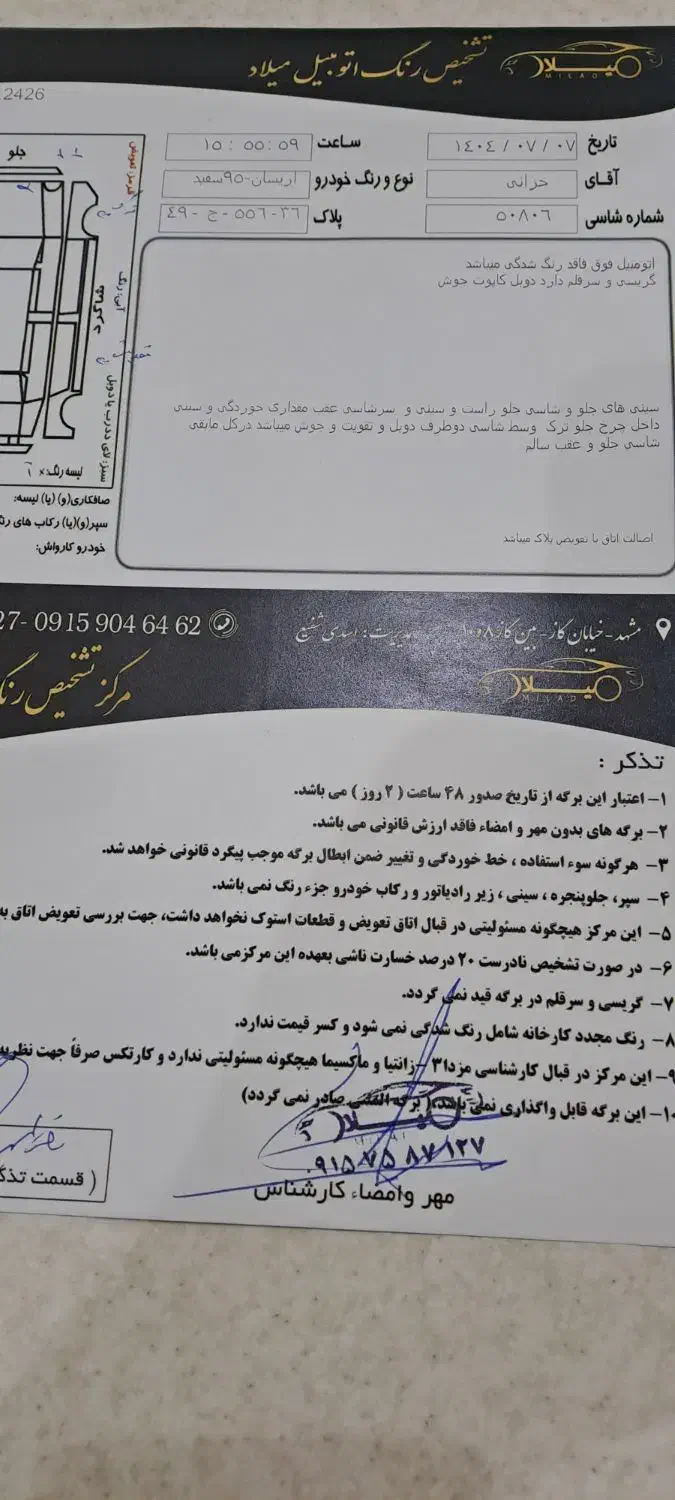 تشخیص رنگ اتومبیل میلاد
میلاد
MILAD
2426
تاریخ ۱۴۰۴ / ۰۷ / ۰۷
ساعت ۱۵ : ۵۵: ۵۹
آقای خزائی
نوع و رنگ خودرو اریسان-۹۵سفید
شماره شاسی ۵۰۸۰۶
پلاک ۳۶-۵۵۶ - ج - ۴۹
اتومبیل فوق فاقد رنگ شدگی میباشد
گریسی و سرقلم دارد دوبل کاپوت جوش
سینی های جلو و شاسی جلو راست و سینی و سرشاسی عقب مقداری خوردگی و سینی
داخل چرخ جلو ترک وسط شاسی دوطرف دوبل و تقویت و جوش میباشد درکل مابقی
شاسی جلو و عقب سالم
اصالت اتاق با تعویض پلاک میباشد
جلو
قرمز: تعویض
آبی: رنگ
شاگرد
سبز: لای درب یا دوبل
لیسه رنگ: ×
صافکاری(و) (یا) لیسه:
سپر(و)(یا) رکاب های
خودرو کارواش:
مشهد - خیابان گاز - بین گاز ۸ و ۱۰
مدیریت: اسدی شفیع
27- 0915 904 64 62
میلاد
MILAD
مرکز تشخیص رنگ
تذکر :
۱– اعتبار این برگه از تاریخ صدور ۴۸ ساعت ( ۲ روز ) می باشد.
۲– برگه های بدون مهر و امضاء فاقد ارزش قانونی می باشد.
۳– هرگونه سوء استفاده ، خط خوردگی و تغییر ضمن ابطال برگه موجب پیگرد قانونی خواهد شد.
۴– سپر، جلوپنجره ، سینی ، زیر رادیاتور و رکاب خودرو جزء رنگ نمی باشد.
۵– این مرکز هیچگونه مسئولیتی در قبال اتاق تعویض و قطعات استوک نخواهد داشت، جهت بررسی تعویض اتاق به
۶– در صورت تشخیص نادرست ۲۰ درصد خسارت ناشی بعهده این مرکزمی باشد.
۷– گریسی و سرقلم در برگه قید نمی گردد.
۸– رنگ مجدد کارخانه شامل رنگ شدگی نمی شود و کسر قیمت ندارد.
۹– این مرکز در قبال کارشناسی مزدا۳ –زانتیا و ماکسیما هیچگونه مسئولیتی ندارد و کارتکس صرفاً جهت نظریه
۱۰– این برگه قابل واگذاری نمی باشد.( برگه المثنی صادر نمی گردد)
میلاد
۰۹۱۵۷۵۸۷۱۲۷
مهر وامضاء کارشناس
( قسمت تذکر